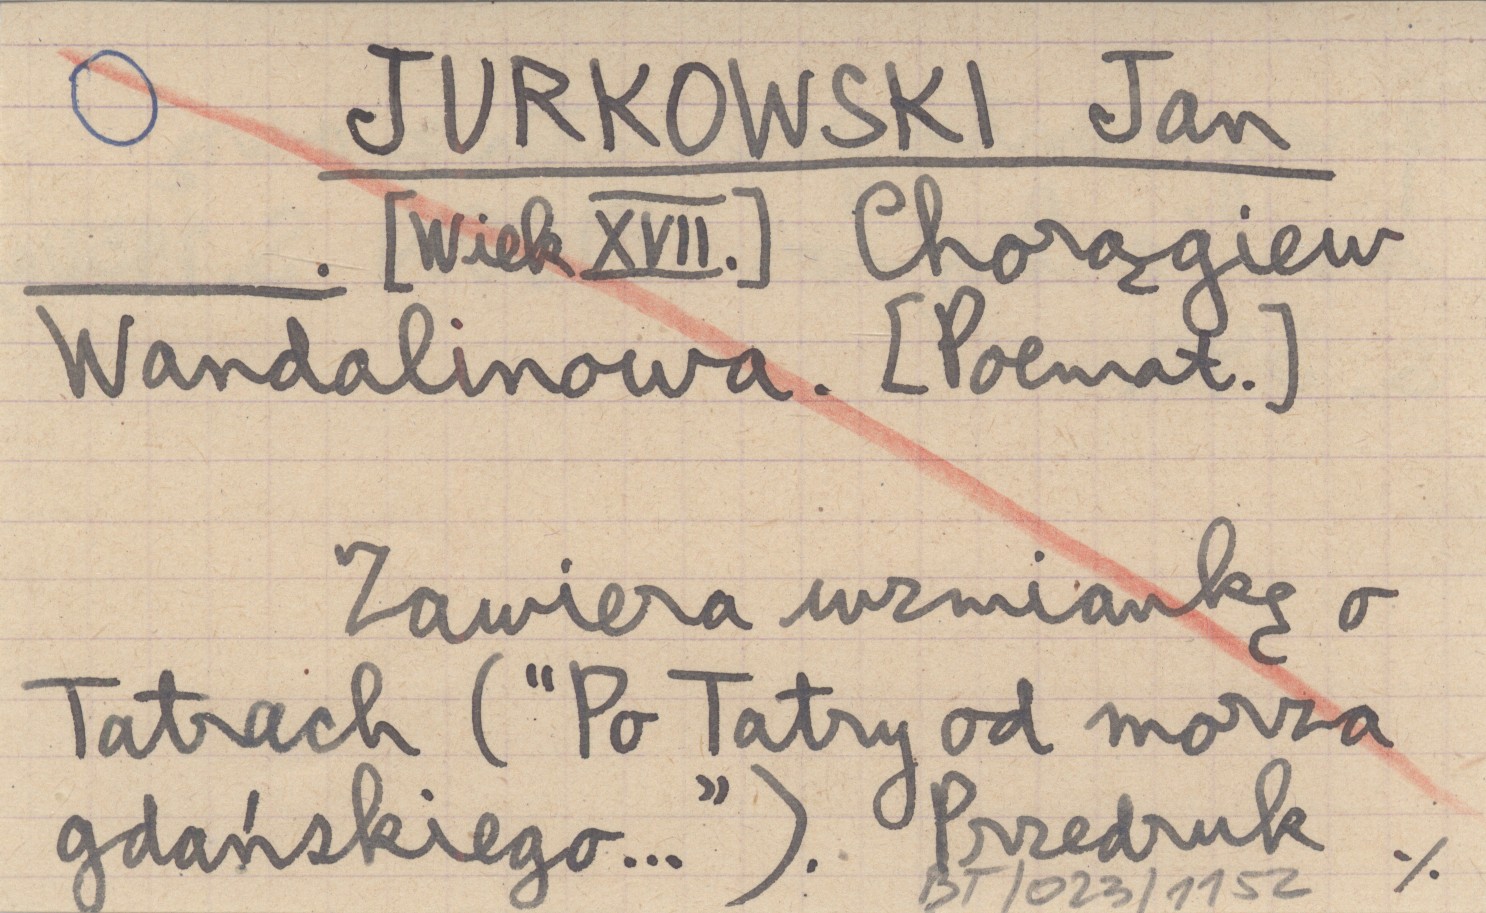 JURKOWSKI Jan
. [Wiek XVII.] Chorągiew
Wandalinowa. [Poemat.]
Zawiera wzmiankę o
Tatrach ("Po Tatry od morza
gdańskiego..."). Przedruk
BT/023/1152 ./.